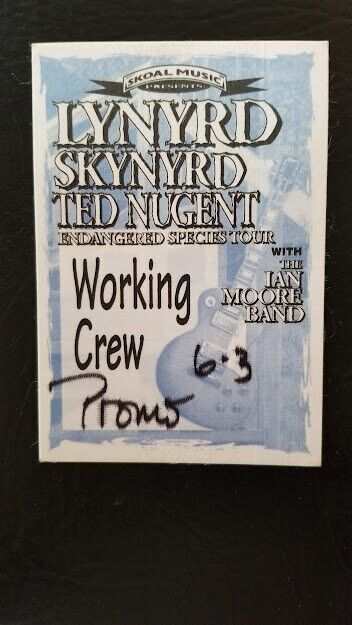 SKOAL MUSIC
PRESENTS
LYNYRD
SKYNYRD
TED NUGENT
ENDANGERED SPECIES TOUR
WITH
THE
IAN
MOORE
BAND
Working
Crew
6·3
Promo